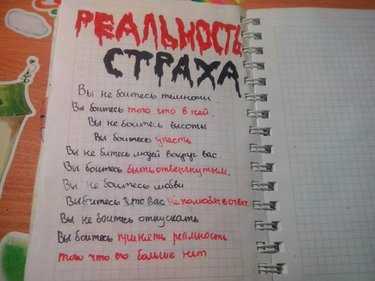 РЕАЛЬНОСТЬ
СТРАХА
Вы не боитесь темноты
Вы боитесь того что в ней.
Вы не боитесь высоты
Вы боитесь упасть
Вы не битесь людей вокруг вас.
Вы боитесь быть отвергнутым.
Вы не боитесь любви
Вы боитесь что вас не полюбят в ответ.
Вы не боитесь отпускать
Вы боитесь принять реальность
того что его больше нет